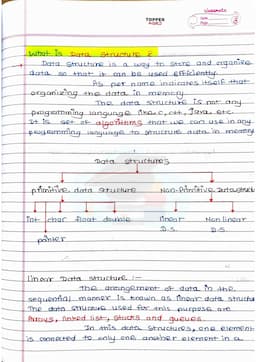 TOPPER
What is Data Structure ?
Data structure is a way to store and organize
data so that it can be used efficiently.
As per name indicates itself that
organizing the data in memory.
The data structure is not any
programming language like c, c++, java, etc.
It is set of algorithms that we can use in any
programming language to structure data in memory
Data structures
primitive data structure Non-Primitive Datastruct
int char float double linear Non linear
D.S. D.S.
pointer
linear Data structure :-
The arrangement of data in the
sequential manner is known as linear data structu
The data structure used for this purpose are
Arrays, linked list, stacks and queues.
In this data structures, one element
is connected to only one another element in a